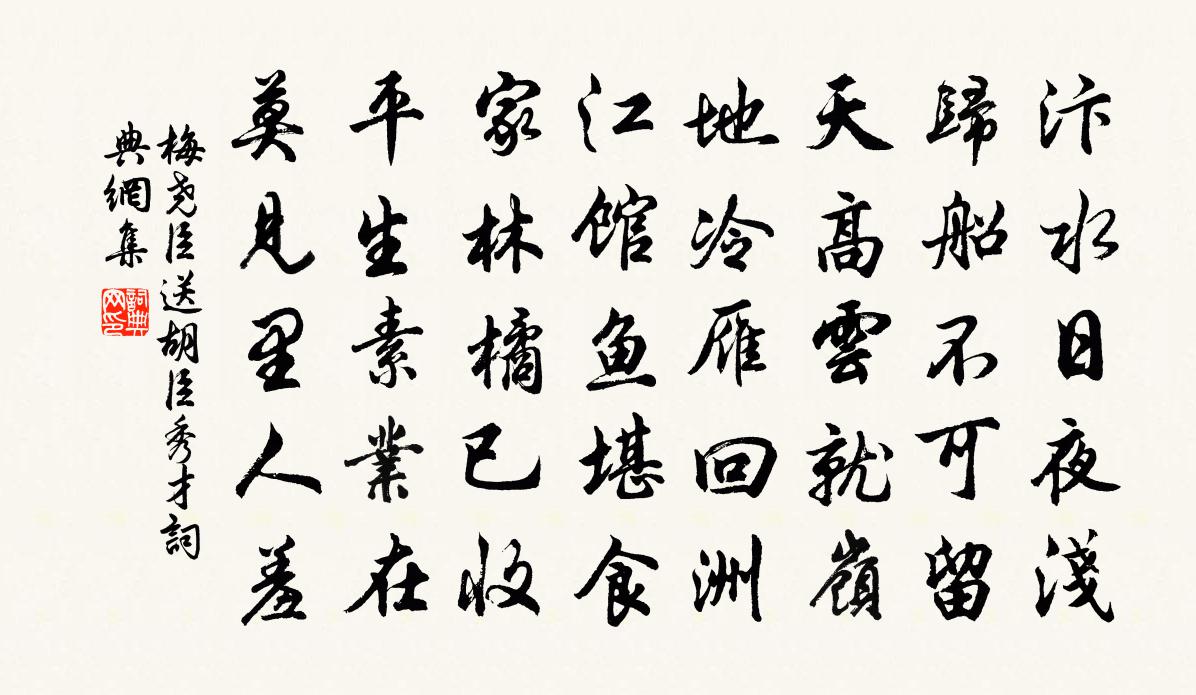 汴水日夜淺
歸船不可留
天高雲就嶺
地冷雁回洲
江館魚堪食
家林橘已收
平生素業在
莫見里人羞
梅尧臣送胡臣秀才詞
典網集
詞典
网印